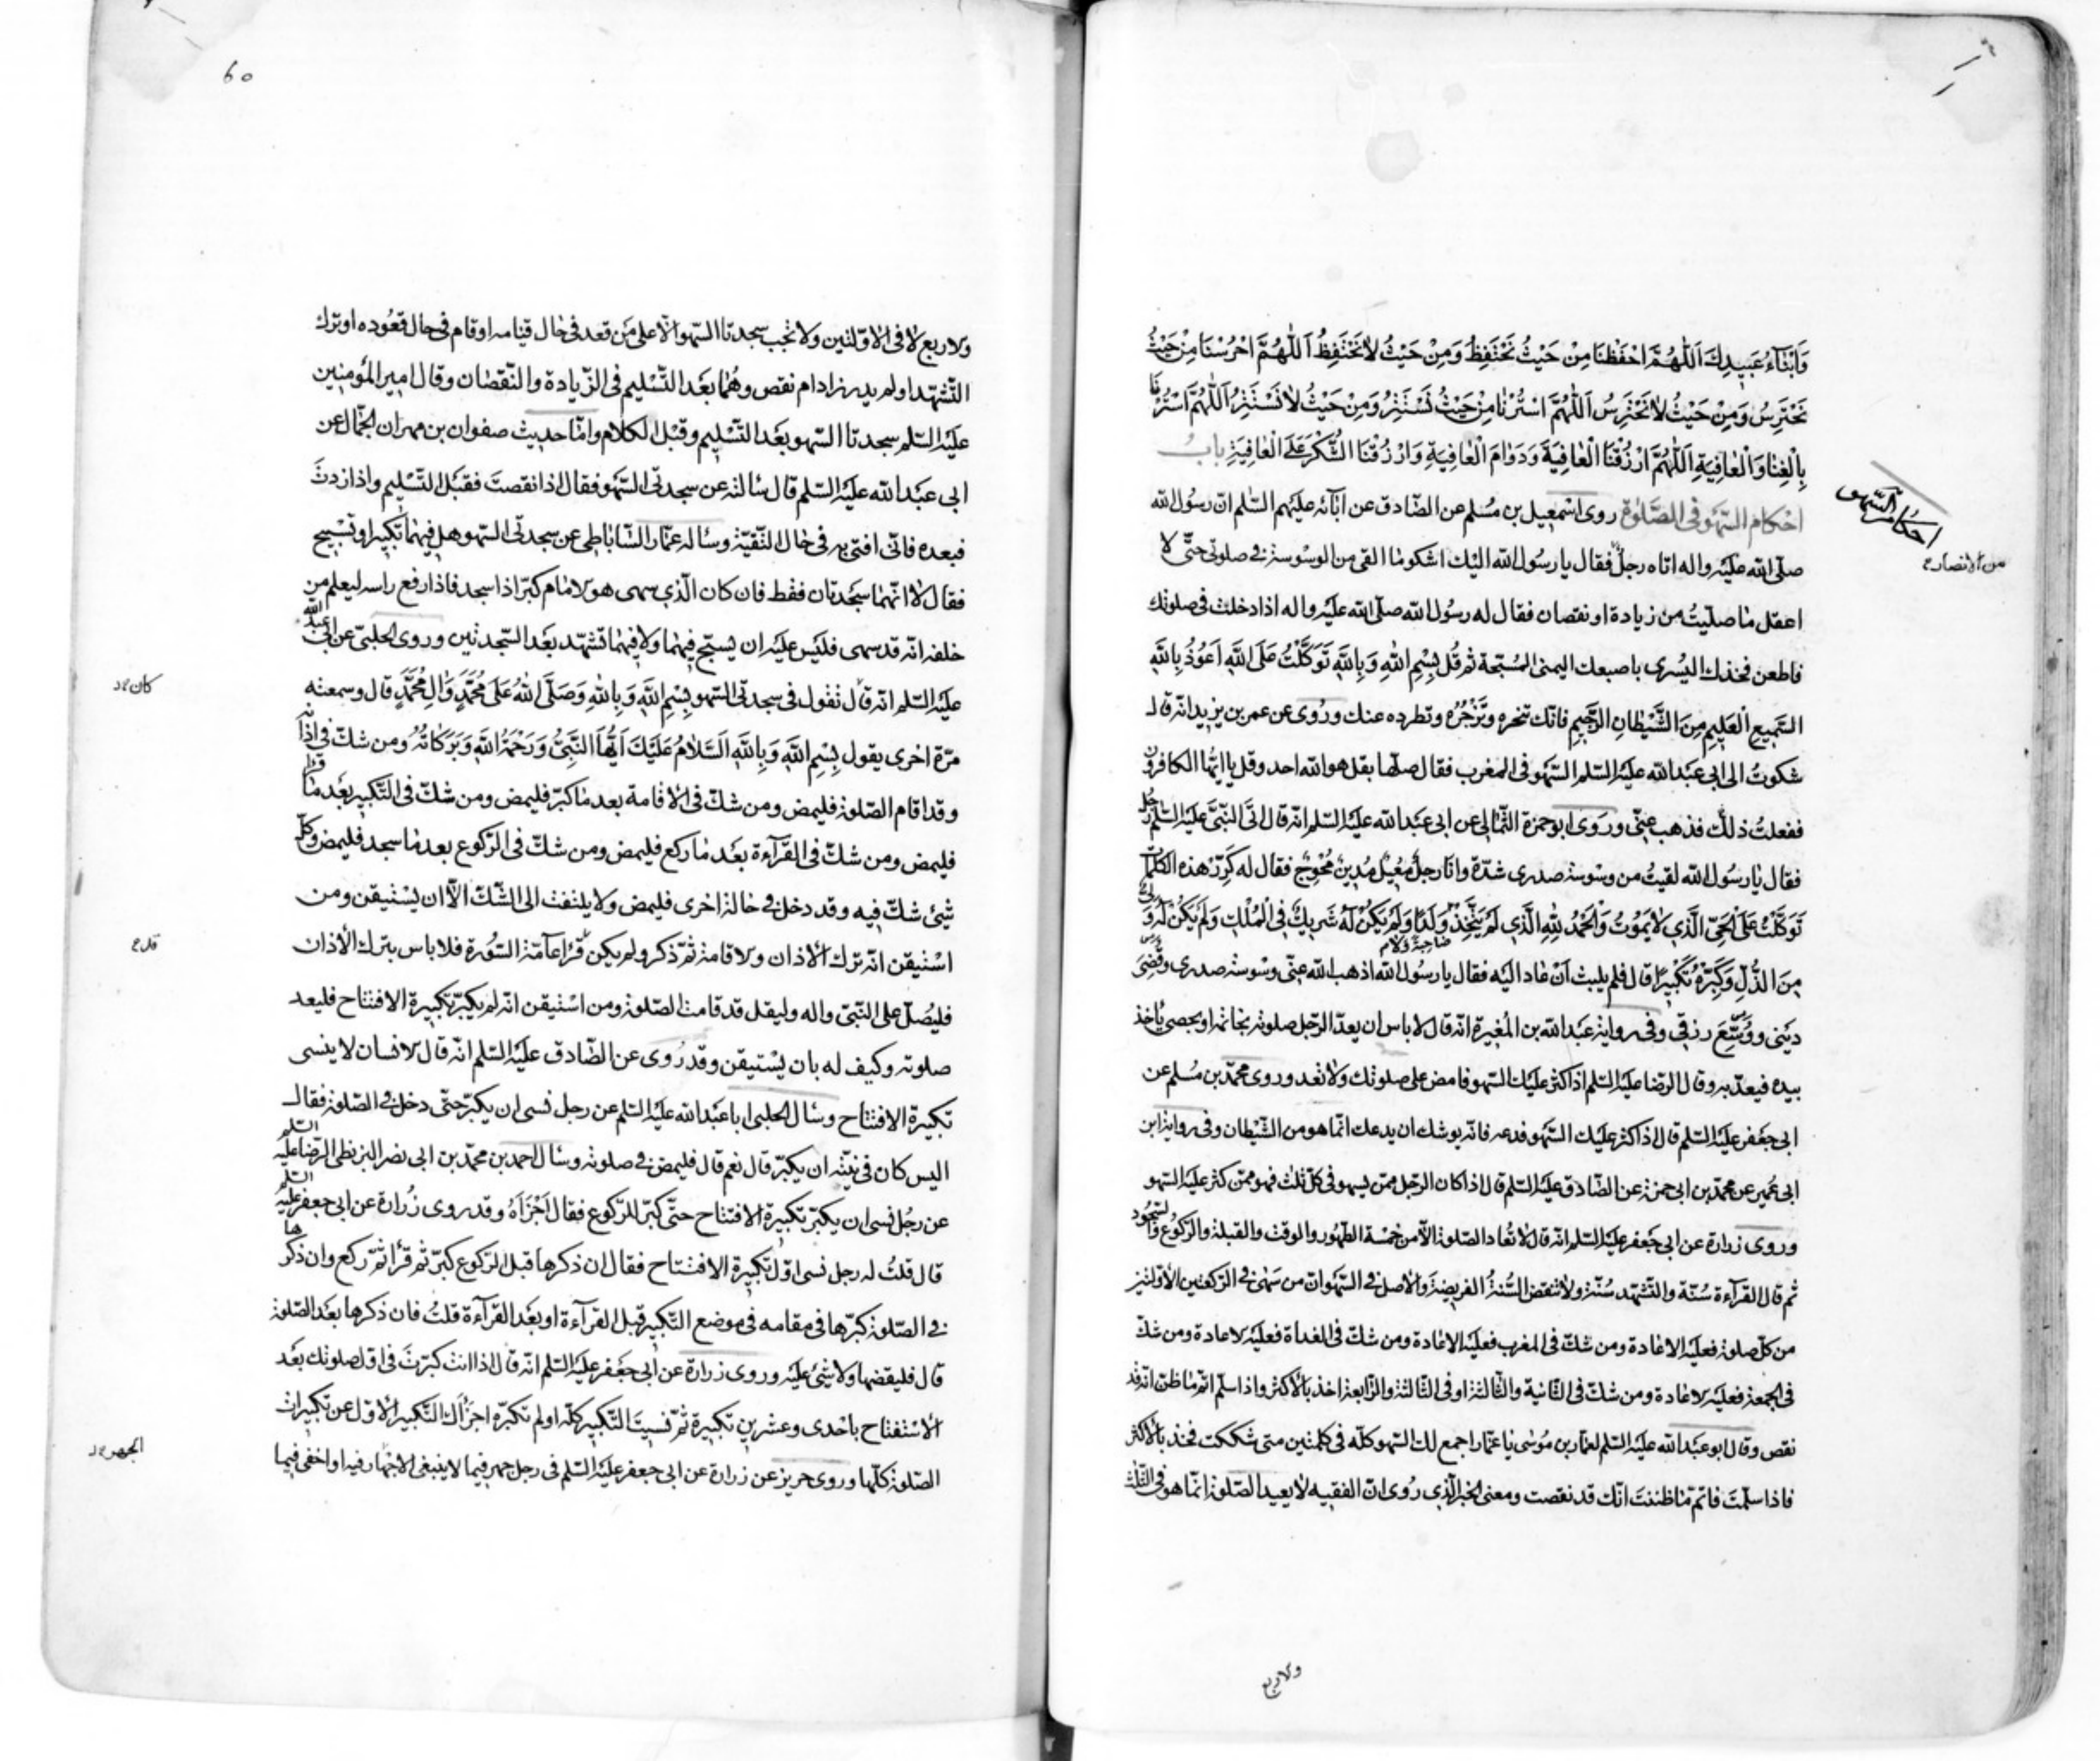 وَاَبْنَآءُ عَبِيدِكَ اَللّٰهُمَّ احْفَظْنَا مِنْ حَيْثُ نَحْتَفِظُ وَمِنْ حَيْثُ لاٰ نَحْتَفِظُ اَللّٰهُمَّ احْرُسْنَا مِنْ حَيْثُ
نَحْتَرِسُ وَمِنْ حَيْثُ لاٰ نَحْتَرِسُ اَللّٰهُمَّ اسْتُرْنٰا مِنْ حَيْثُ نَسْتَتِرُ وَمِنْ حَيْثُ لاٰ نَسْتَتِرُ اَللّٰهُمَّ اسْتُرْنَا
بِالْغِنٰا وَالْعٰافِيَةِ اَللّٰهُمَّ ارْزُقْنَا الْعٰافِيَةَ وَدَوٰامَ الْعٰافِيَةِ وَارْزُقْنَا الشُّكْرَ عَلَى الْعٰافِيَةِ بابُ
احكام السّهو
احْكام السّهْو فى الصَّلٰوة روى اسْمٰعيل بن مُسْلم عن الصّادق عن آبآئه عليهم السّلم انّ رسُول الله
من الانصار ع
صلّى الله عليْه واله اتاه رجلٌ فقال يا رسُول الله اليْك اشكو ما القى من الوسْوسة فى صلوتى حتّى لا
اعقل ما صلّيتُ من زيادة او نقصان فقال له رسُول الله صلّى الله عليْه واله اذا دخلت فى صلوتك
فاطعن فخذك اليُسْرى باصبعك اليمنى المُسَبّحة ثم قُل بِسْمِ اللهِ وَبِاللهِ تَوَكَّلْتُ عَلَى اللهِ اَعُوذُ بِاللهِ
السَّمِيعِ الْعَلِيمِ مِنَ الشَّيْطٰانِ الرَّجِيمِ فانّك تنحره وتَزْجُرُه وتطرده عنك ورُوى عن عمر بن يزيد انّه قال
شكوتُ الى ابى عبْد الله عليْه السّلم السّهْو فى المغرب فقال صلّها بقل هو الله احد وقل يا ايّها الكافرون
ففعلتُ ذلك فذهب عنّى وروى ابو حمزة الثّمالى عن ابى عبْد الله عليْه السّلم انّه قال اتى النّبىّ عليْه السّلم رجل
فقال يا رسُول الله لقيتُ من وسْوسة صدرى شدّة وانا رجلٌ مُعِيلٌ مُدِينٌ مُحْوِجٌ فقال له كَرِّرْ هذه الكلمات
تَوَكَّلْتُ عَلَى الْحَىِّ الَّذِى لاٰ يَمُوتُ وَالْحَمْدُ لِلّٰهِ الَّذِى لَمْ يَتَّخِذْ وَلَدًا وَلَمْ يَكُنْ لَهُ شَرِيكٌ فِى الْمُلْكِ وَلَمْ يَكُنْ لَهُ وَلِىٌّ
مِنَ الذُّلِّ وَكَبِّرْهُ تَكْبِيرًا قال فلم يلبث اَنْ عاد اليْه فقال يا رسُول الله اذهب الله عنّى وسْوسة صدرى وقَضٰى
ديْنى ووَسَّعَ رزقى وفى رواية عبْد الله بن المُغيرة انّه قال لا باس ان يعدّ الرّجل صلوته بخاتمه او بحصى ياخذ
بيده فيعدّ به وقال الرّضا عليْه السّلم اذا كثر عليْك السّهو فامض على صلوتك ولا تعد وروى محمّد بن مُسْلم عن
ابى جعْفر عليْه السّلم قال اذا كثر عليْك السّهْو فدعه فانّه يوشك ان يدعك انّما هو من الشّيْطان وفى رواية ابن
ابى عُمير عن محمّد بن ابى حمزة عن الصّادق عليْه السّلم قال اذا كان الرّجل ممّن يسهو فى كلّ ثلث فهو ممّن كثر عليْه السّهو
وروى زرارة عن ابى جعْفر عليْه السّلم انّه قال لا تُعاد الصّلوة الّا من خمْسة الطّهُور والوقت والقبلة والرّكُوع والسّجُود
ثم قال القرآءة سُنّة والتّشهّد سُنّة ولا تنقض السُّنّةُ الفريضةَ والاصل فى السّهو انّ من سَهى فى الرّكعتين الاوّلتين
من كلّ صلوة فعليْه الاعادة ومن شكّ فى المغرب فعليْه الاعادة ومن شكّ فى الغداة فعليْه الاعادة ومن شكّ
فى الجمعة فعليْه الاعادة ومن شكّ فى الثّانية والثّالثة او فى الثّالثة والرّابعة اخذ بالاكثر واذا سلّم اتمّ ما ظنّ انّه قد
نقص وقال ابو عبْد الله عليْه السّلم لعمّار بن مُوسٰى يا عمّار اجمع لك السّهو كلّه فى كلمتين متى شككت فخذ بالاكثر
فاذا سلّمتَ فاتمّ ما ظننتَ انّك قد نقصت ومعنى الخبر الّذى رُوى انّ الفقيه لا يعيد الصّلوة انّما هو فى الثّلث
والاربع
60
والاربع لا فى الاوّلتين ولا تجب سجدتا السّهو الّا على من قعد فى حال قيامه او قام فى حال قعُوده او ترك
التّشهّد او لم يدر زاد ام نقص وهُما بعْد التّسْليم فى الزّيادة والنّقصان وقال امير المُؤمنين
عليْه السّلم سجدتا السّهو بعْد التّسْليم وقبْل الكلام وامّا حديث صفوان بن مهران الجمّال عن
ابى عبْد الله عليْه السّلم قال سالته عن سجدتى السّهْو فقال اذا نقصتَ فقبْل التّسْليم واذا زدتَ
فبعده فانّى افتى به فى حال التّقيّة وساله عمّار السّاباطى عن سجدتى السّهو هل فيهما تكْبير او تسْبيح
فقال لا انّهما سجْدتان فقط فان كان الّذى سهى هو الامام كبّر اذا سجد فاذا رفع راسه ليعلم من
خلفه انّه قد سهى فليْس عليْه ان يُسبّح فيهما ولا فيهما تشهّد بعْد السّجدتين وروى الحلبىّ عن ابى عبد الله
كان
عليْه السّلم انّه قال تقول فى سجدتى السّهو بِسْمِ اللهِ وَبِاللهِ وَصَلَّى اللهُ عَلٰى مُحَمَّدٍ وَاٰلِ مُحَمَّدٍ قال وسمعته
مرّة اخرى يقول بِسْمِ اللهِ وَبِاللهِ اَلسَّلاٰمُ عَلَيْكَ اَيُّهَا النَّبِىُّ وَرَحْمَةُ اللهِ وَبَرَكٰاتُهُ ومن شكّ فى اذانه
وقد اقام الصّلوة فليمض ومن شكّ فى الاقامة بعد ما كبّر فليمض ومن شكّ فى التّكْبير بعْد ما قرا
فليمض ومن شكّ فى القرآءة بعْد ما ركع فليمض ومن شكّ فى الرّكوع بعد ما سجد فليمض وكلّ
شىْء شكّ فيه وقد دخل فى حالة اخرى فليمض ولا يلتفت الى الشّكّ الّا ان يسْتيقن ومن
قد ع
اسْتيقن انّه ترك الاذان والاقامة ثمّ ذكر ولم يكن قرا عآمّة السّورة فلا باس بترك الاذان
فليُصلّ على النّبىّ واله وليقل قد قامت الصّلوة ومن اسْتيقن انّه لم يكبّر تكْبيرة الافتتاح فليعد
صلوته وكيف له بان يسْتيقن وقد رُوى عن الصّادق عليْه السّلم انّه قال الانسان لا ينسى
تكبيرة الافتتاح وسال الحلبى ابا عبْد الله عليْه السّلم عن رجل نسى ان يكبّر حتّى دخل فى الصّلوة فقال
اليس كان فى نيّته ان يكبّر قال نعم قال فليمض فى صلوته وسال احمد بن محمّد بن ابى نصر البزنطى الرّضا عليه السّلم
عن رجُل نسى ان يكبّر تكبيرة الافتتاح حتّى كبّر للرّكوع فقال اَجْزَأَهُ وقد روى زُرارة عن ابى جعفر عليْه السّلم
قال قلتُ له رجل نسى اوّل تكبيرة الافتتاح فقال ان ذكرها قبل الرّكوع كبّر ثم قرا ثمّ ركع وان ذكرها
فى الصّلوة كبّرها فى مقامه فى موضع التّكْبير قبل القرآءة او بعْد القرآءة قلتُ فان ذكرها بعْد الصّلوة
قال فليقضها ولا شىْء عليْه وروى زرارة عن ابى جعْفر عليْه السّلم انّه قال اذا انت كبّرتَ فى اوّل صلوتك بعْد
الاسْتفتاح باحْدى وعشرين تكبيرة ثمّ نسيتَ التّكْبير كلّه او لم تكبّره اجزأك التّكْبير الاوّل عن تكبيرات
الجهر
الصّلوة كلّها وروى حريز عن زرارة عن ابى جعفر عليْه السّلم فى رجل جهر فيما لا ينبغى الاجهار فيه او اخفى فيما